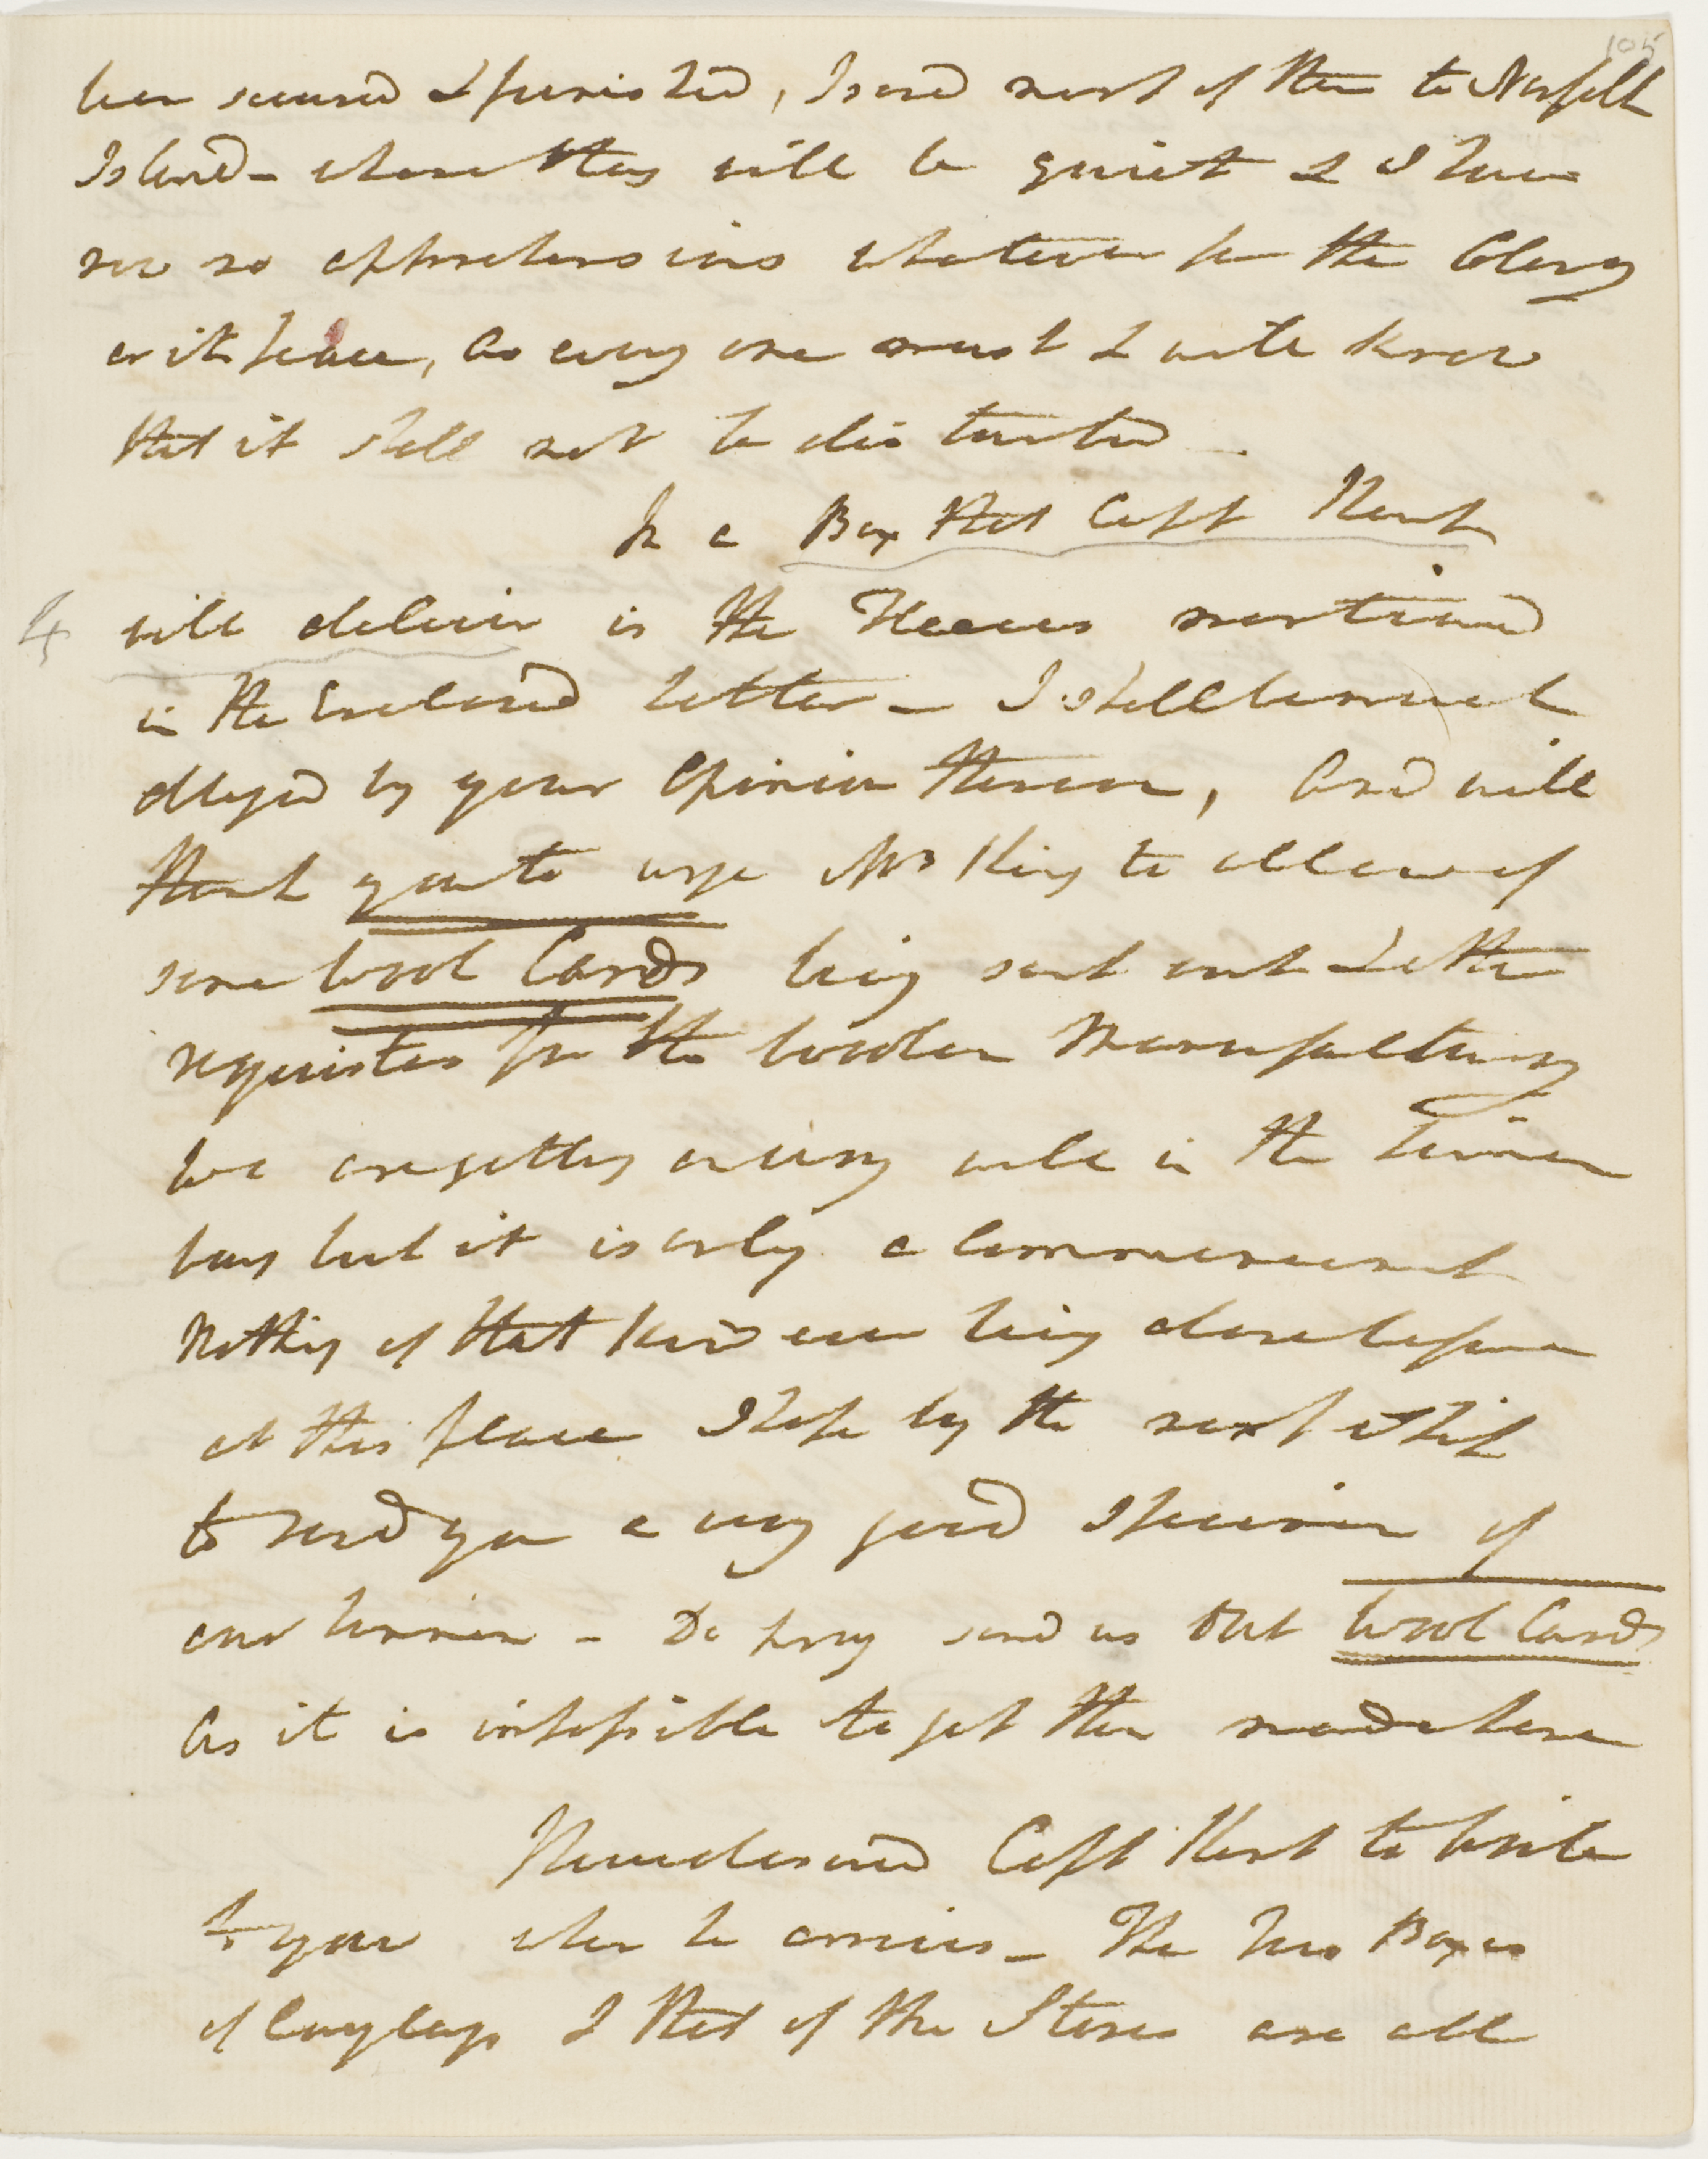 105
been secured & punished, I send most of them to Norfolk
Island - where they will be quiet & I have
now no apprehensions whatever for the Colony
or its peace, as every one must & will know
that it shall not be disturbed -
In a Box that Capt Kent
4 will deliver is the Fleeces mentioned
in the Enclosed letter - I shall be much
obliged by your Opinion thereon, And will
thank you to urge Mr King to allow of
some Wool Cards being sent out & other
requisites for the Woolen Manufactury
We are getting on very well in the Linnen
way but it is only a Commencement
Nothing of that kind ever being done before
at this place I hope by the next Ship
to send you a very good Specimen of
our Linnen - Do pray send us Out Wool Cards
As it is impossible to get them made here
I have desired Capt Kent to write
to you when he arrives - The two Boxes
of & that of the Stones are all